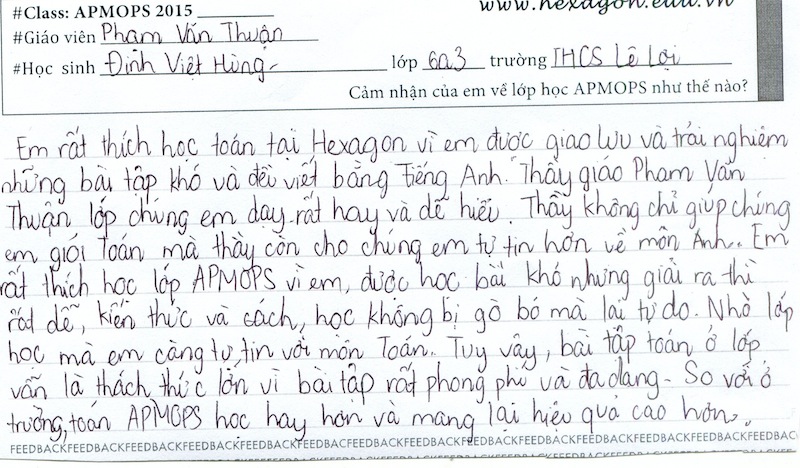 www.hexagon.edu.vn
#Class: APMOPS 2015
#Giáo viên Phạm Văn Thuận
#Học sinh Định Việt Hùng lớp 6a3 trường THCS Lê Lợi
Cảm nhận của em về lớp học APMOPS như thế nào?
Em rất thích học toán tại Hexagon vì em được giao lưu và trải nghiệm
những bài tập khó và đều viết bằng Tiếng Anh. Thầy giáo Phạm Văn
Thuận lớp chúng em dạy rất hay và dễ hiểu. Thầy không chỉ giúp chúng
em giỏi Toán mà thầy còn cho chúng em tự tin hơn về môn Anh. Em
rất thích học lớp APMOPS vì em, được học bài khó nhưng giải ra thì
rất dễ, kiến thức và cách, học không bị gò bó mà lại tự do. Nhờ lớp
học mà em càng tự tin với môn Toán. Tuy vậy, bài tập toán ở lớp
vẫn là thách thức lớn vì bài tập rất phong phú và đa dạng. So với ở
trường, toán APMOPS học hay hơn và mang lại hiệu quả cao hơn.
FEEDBACKFEEDBACKFEEDBACKFEEDBACKFEEDBACKFEEDBACFEEDBACKFEEDBACKFEEDBACKFEEDBACKFEEDBACKFEEDBACK